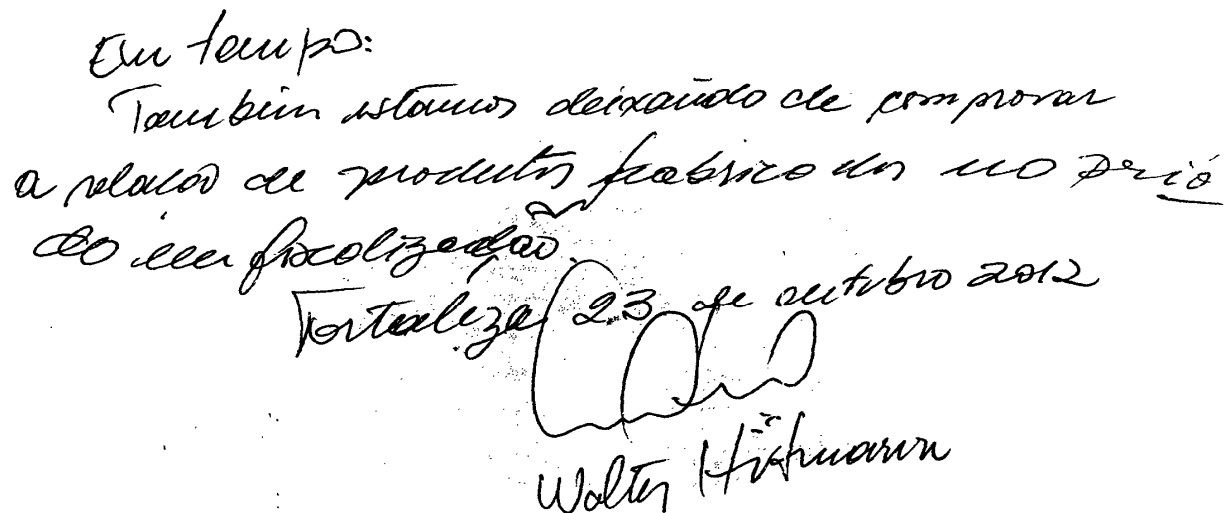 Em tempo:
Também estamos deixando de comprovar
a relação de produtos fabricados no perío
do em fiscalização.
Fortaleza 23 de outubro 2012
Walter